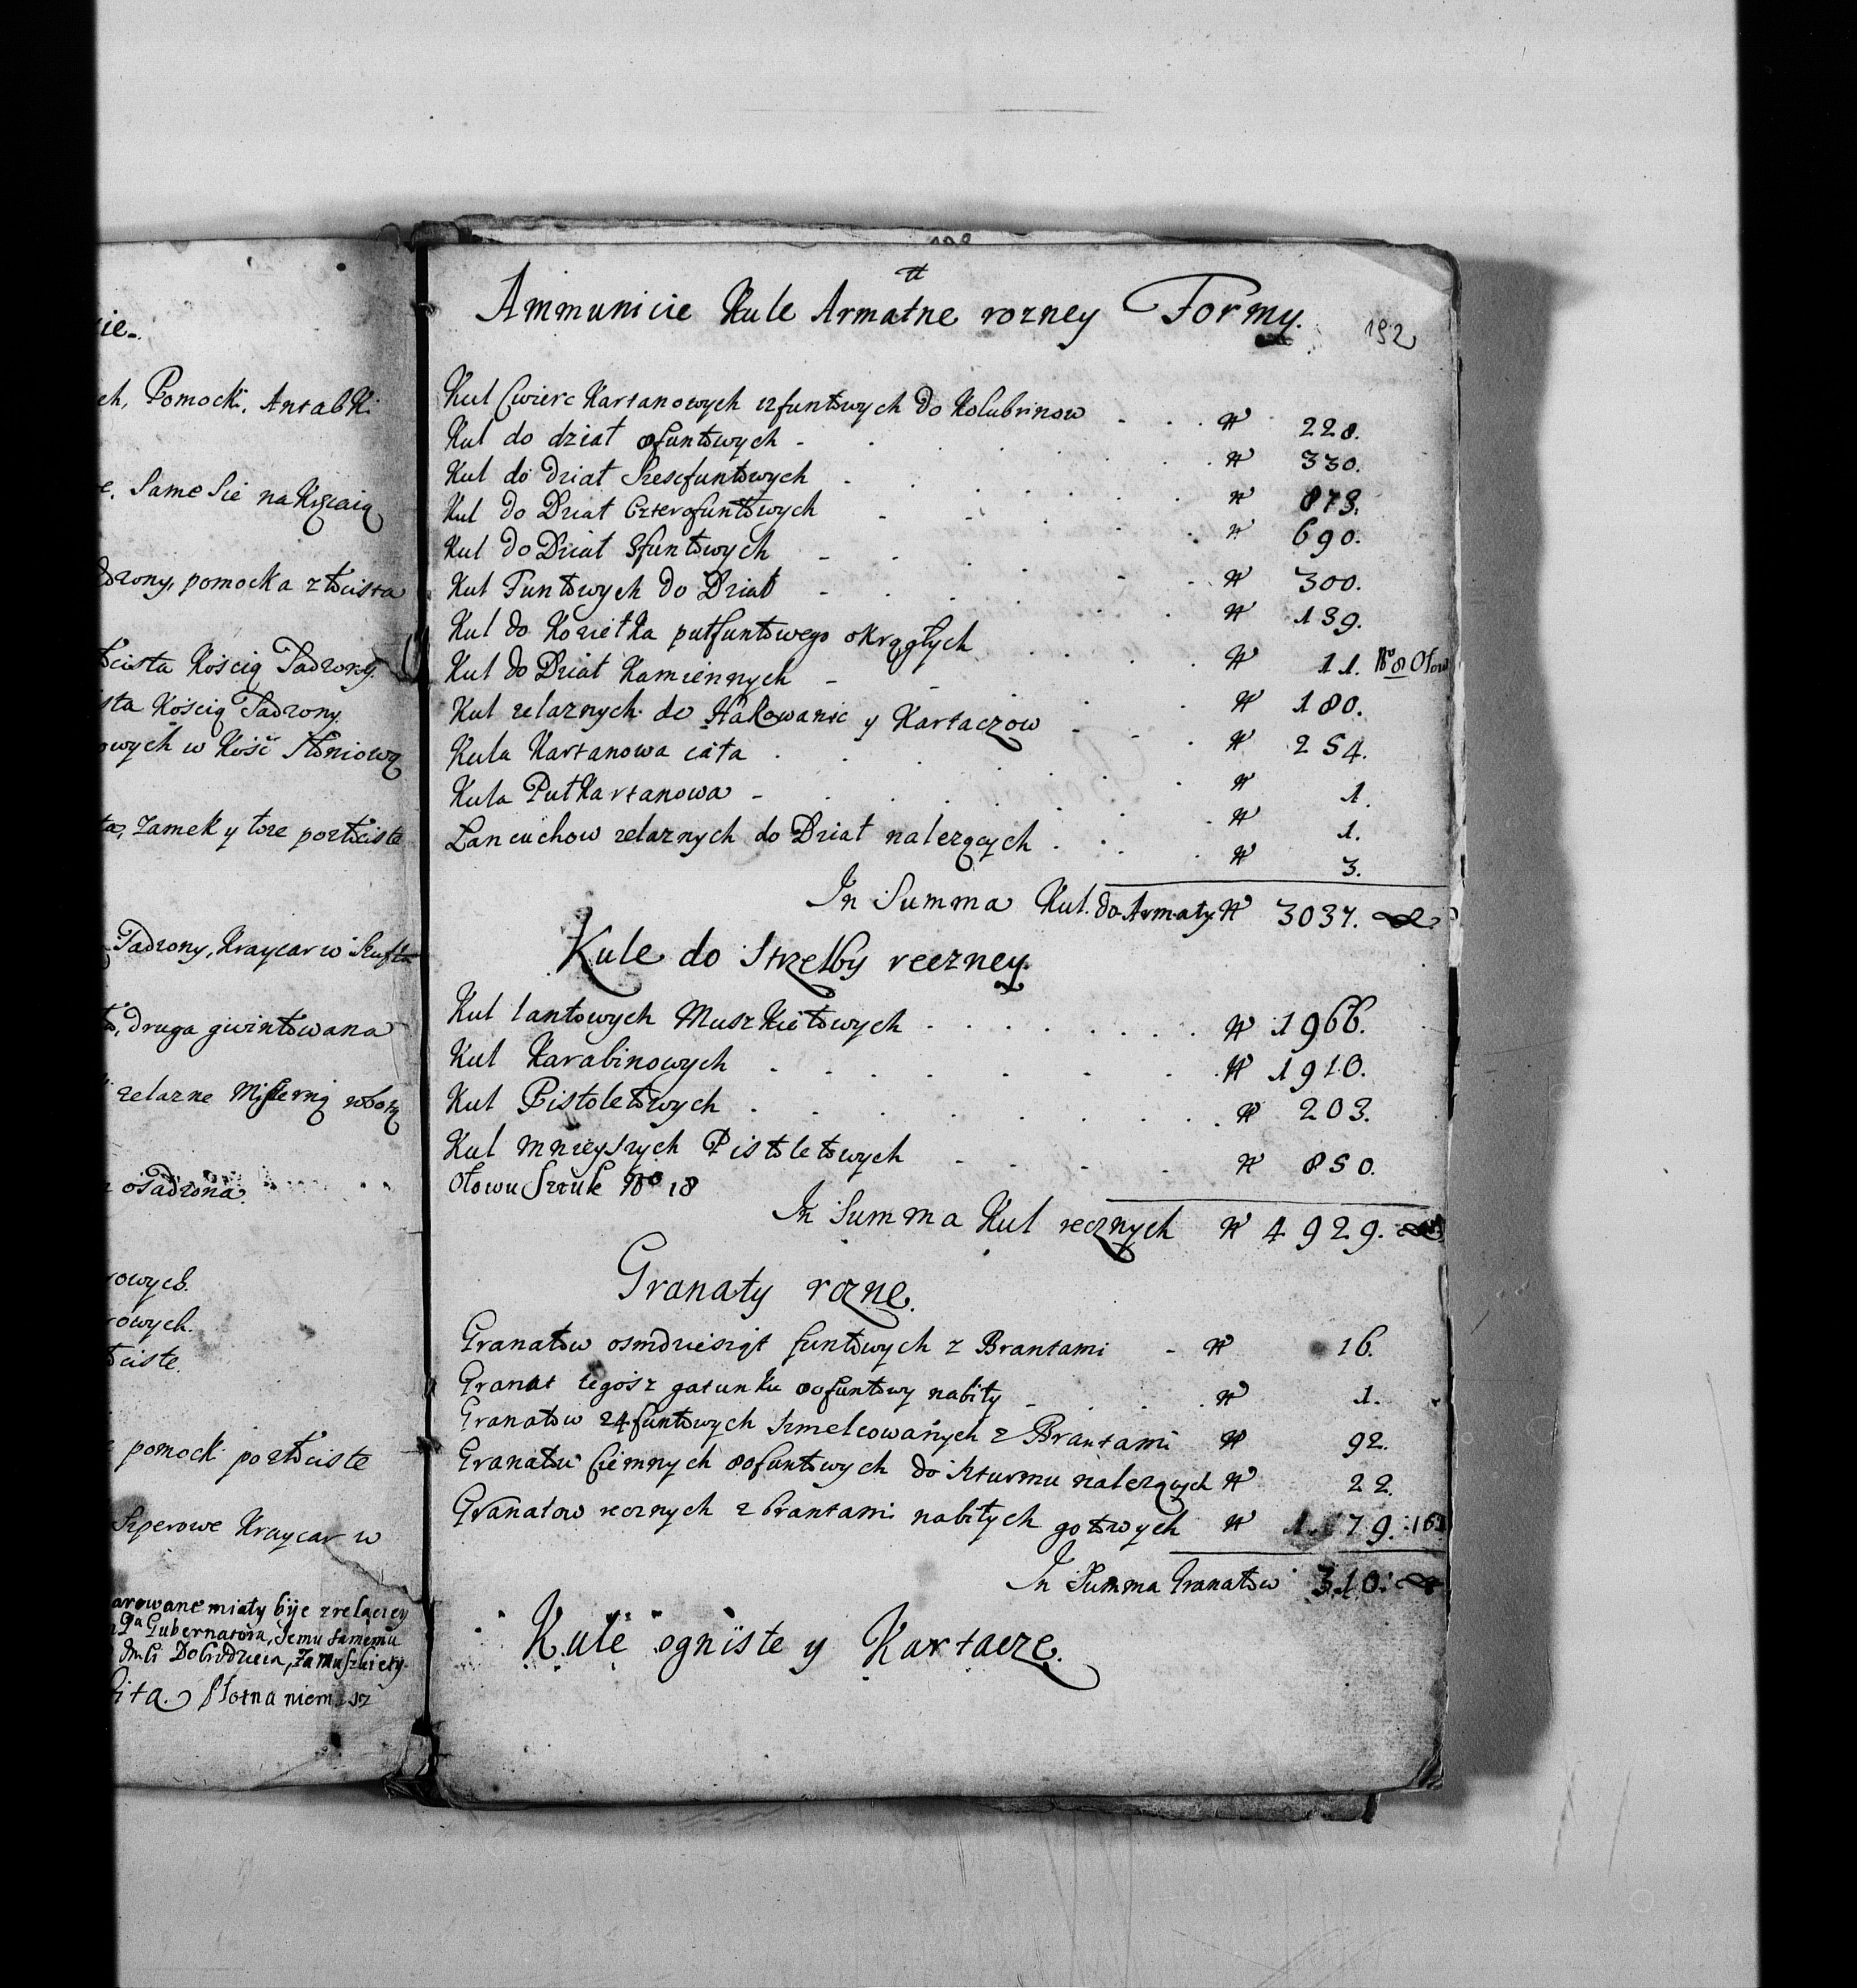 ie.
ch, Pomocki, Antabki
e, Same Sie nakręcaią
drony, pomocka złocista
łcista Kością Sadzony.
sta Kością Sadzony.
owych w Kość Słoniową
ta, Zamek y łoze pozłociste
Sadzony, Kraycar w
druga gwintowana
zelazne Misterną robotą
osadzona.
owych.
owych.
łciste.
pomocki pozłociste
Szperowe Kraycar w
arowane miały bÿc z relaciey
Gubernatora, Jemu samemu
Dobrodzieia, za Muszkiety.
192
Ammunicie Kule Armatne rozney Formy.
Kul Cwierc Kartanowych 12funtowych do Kolubrinow N 228.
Kul do dział 8funtowych N 330.
Kul do Dział Szescfuntowych N 873.
Kul do Dział Czterofuntowych N 690.
Kul do Dział 3funtowych N 300.
Kul Funtowych do Dział N 139.
Kul do Koziełka pułfuntowego okrągłych N 11. No 8 Ołow
Kul do Dział Kamiennych N 180.
Kul zelaznych do Hakowanic y Kartaczow N 254.
Kula Kartanowa cała N 1.
Kula PułKartanowa N 1.
Lancuchow zelaznych do Dział nalezących N 3.
In Summa Kul do Armaty N 3037.
Kule do Strzelby reczney.
Kul lantowych Muszkietowych N 1966.
Kul Karabinowych N 1910.
Kul Pistoletowych N 203.
Kul mnieyszych Pistoletowych N 850.
Ołowu Sztuk No 18
In Summa Kul recznych N 4929.
Granaty rozne.
Granatow osmdziesiąt funtowych z Brantami N 16.
Granat tegosz gatunku 80funtowy nabity N 1.
Granatow 24funtowych szmelcowanych z Brantami N 92.
Granatow Ciemnych 80funtowych do szturmu nalezących N 22.
Granatow recznych z brantami nabitych gotowych N 179.
In Summa Granatow 310.
Kule ogniste y Kartacze.